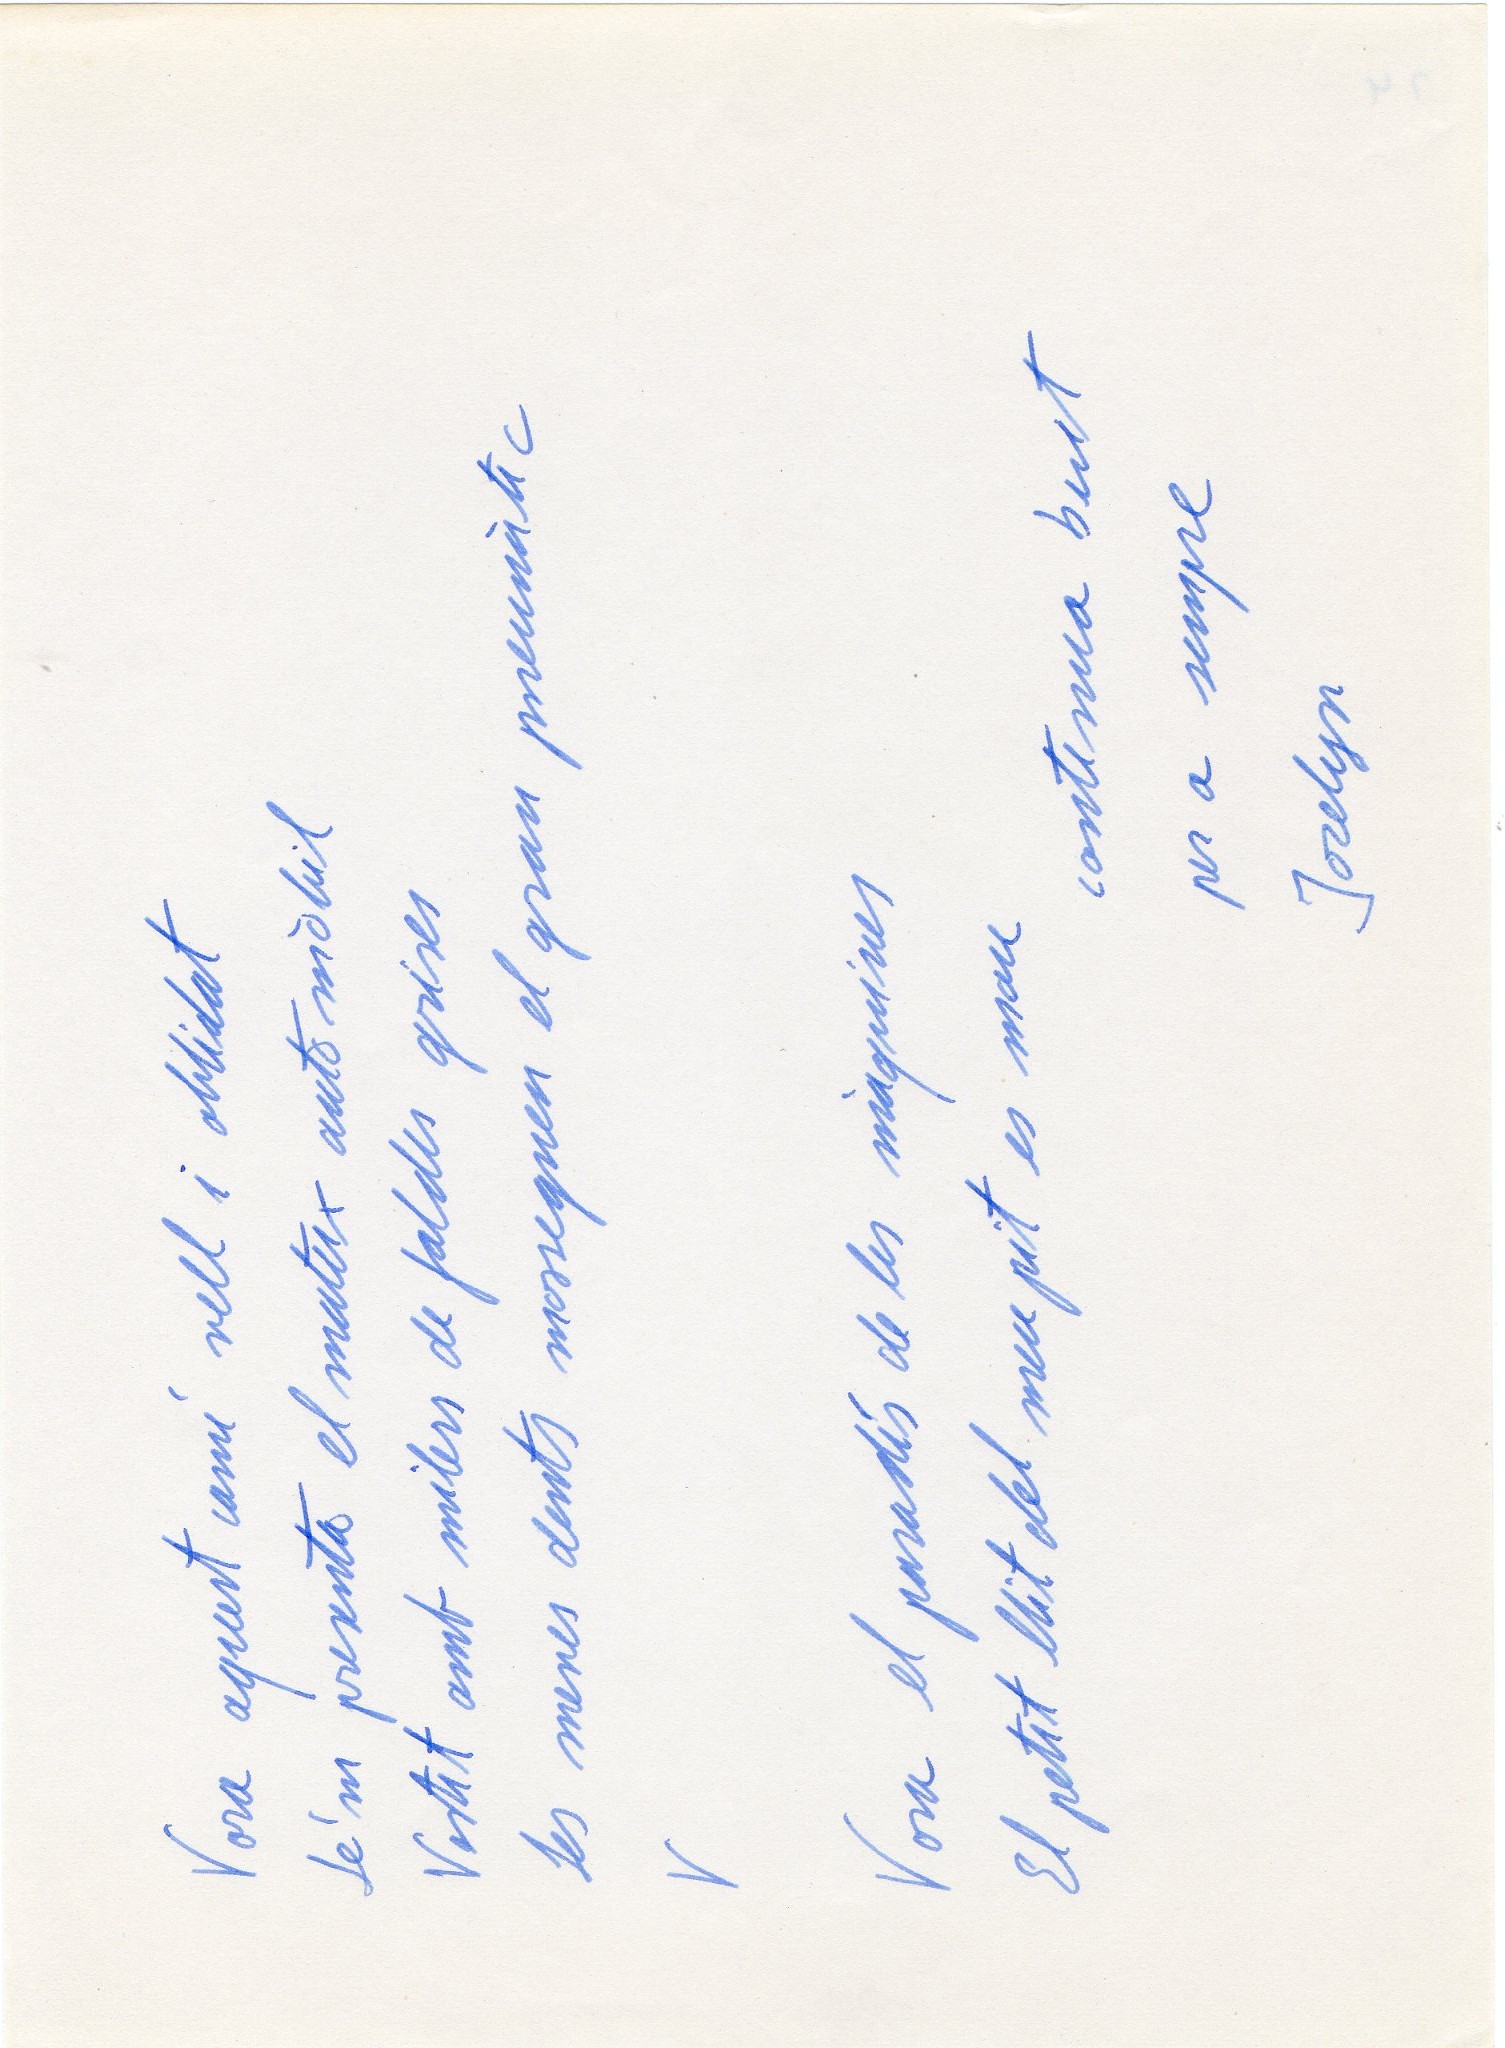 Vora aquest camí vell i oblidat
Se'm presenta el mateix automòbil
Vestit amb milers de faldes grises
Les meves dents moseguen el gran pneumàtic
V
Vora el paradís de les màquines
El petit llit del meu pit es mou
continua buit
per a sempre
Jocelyn